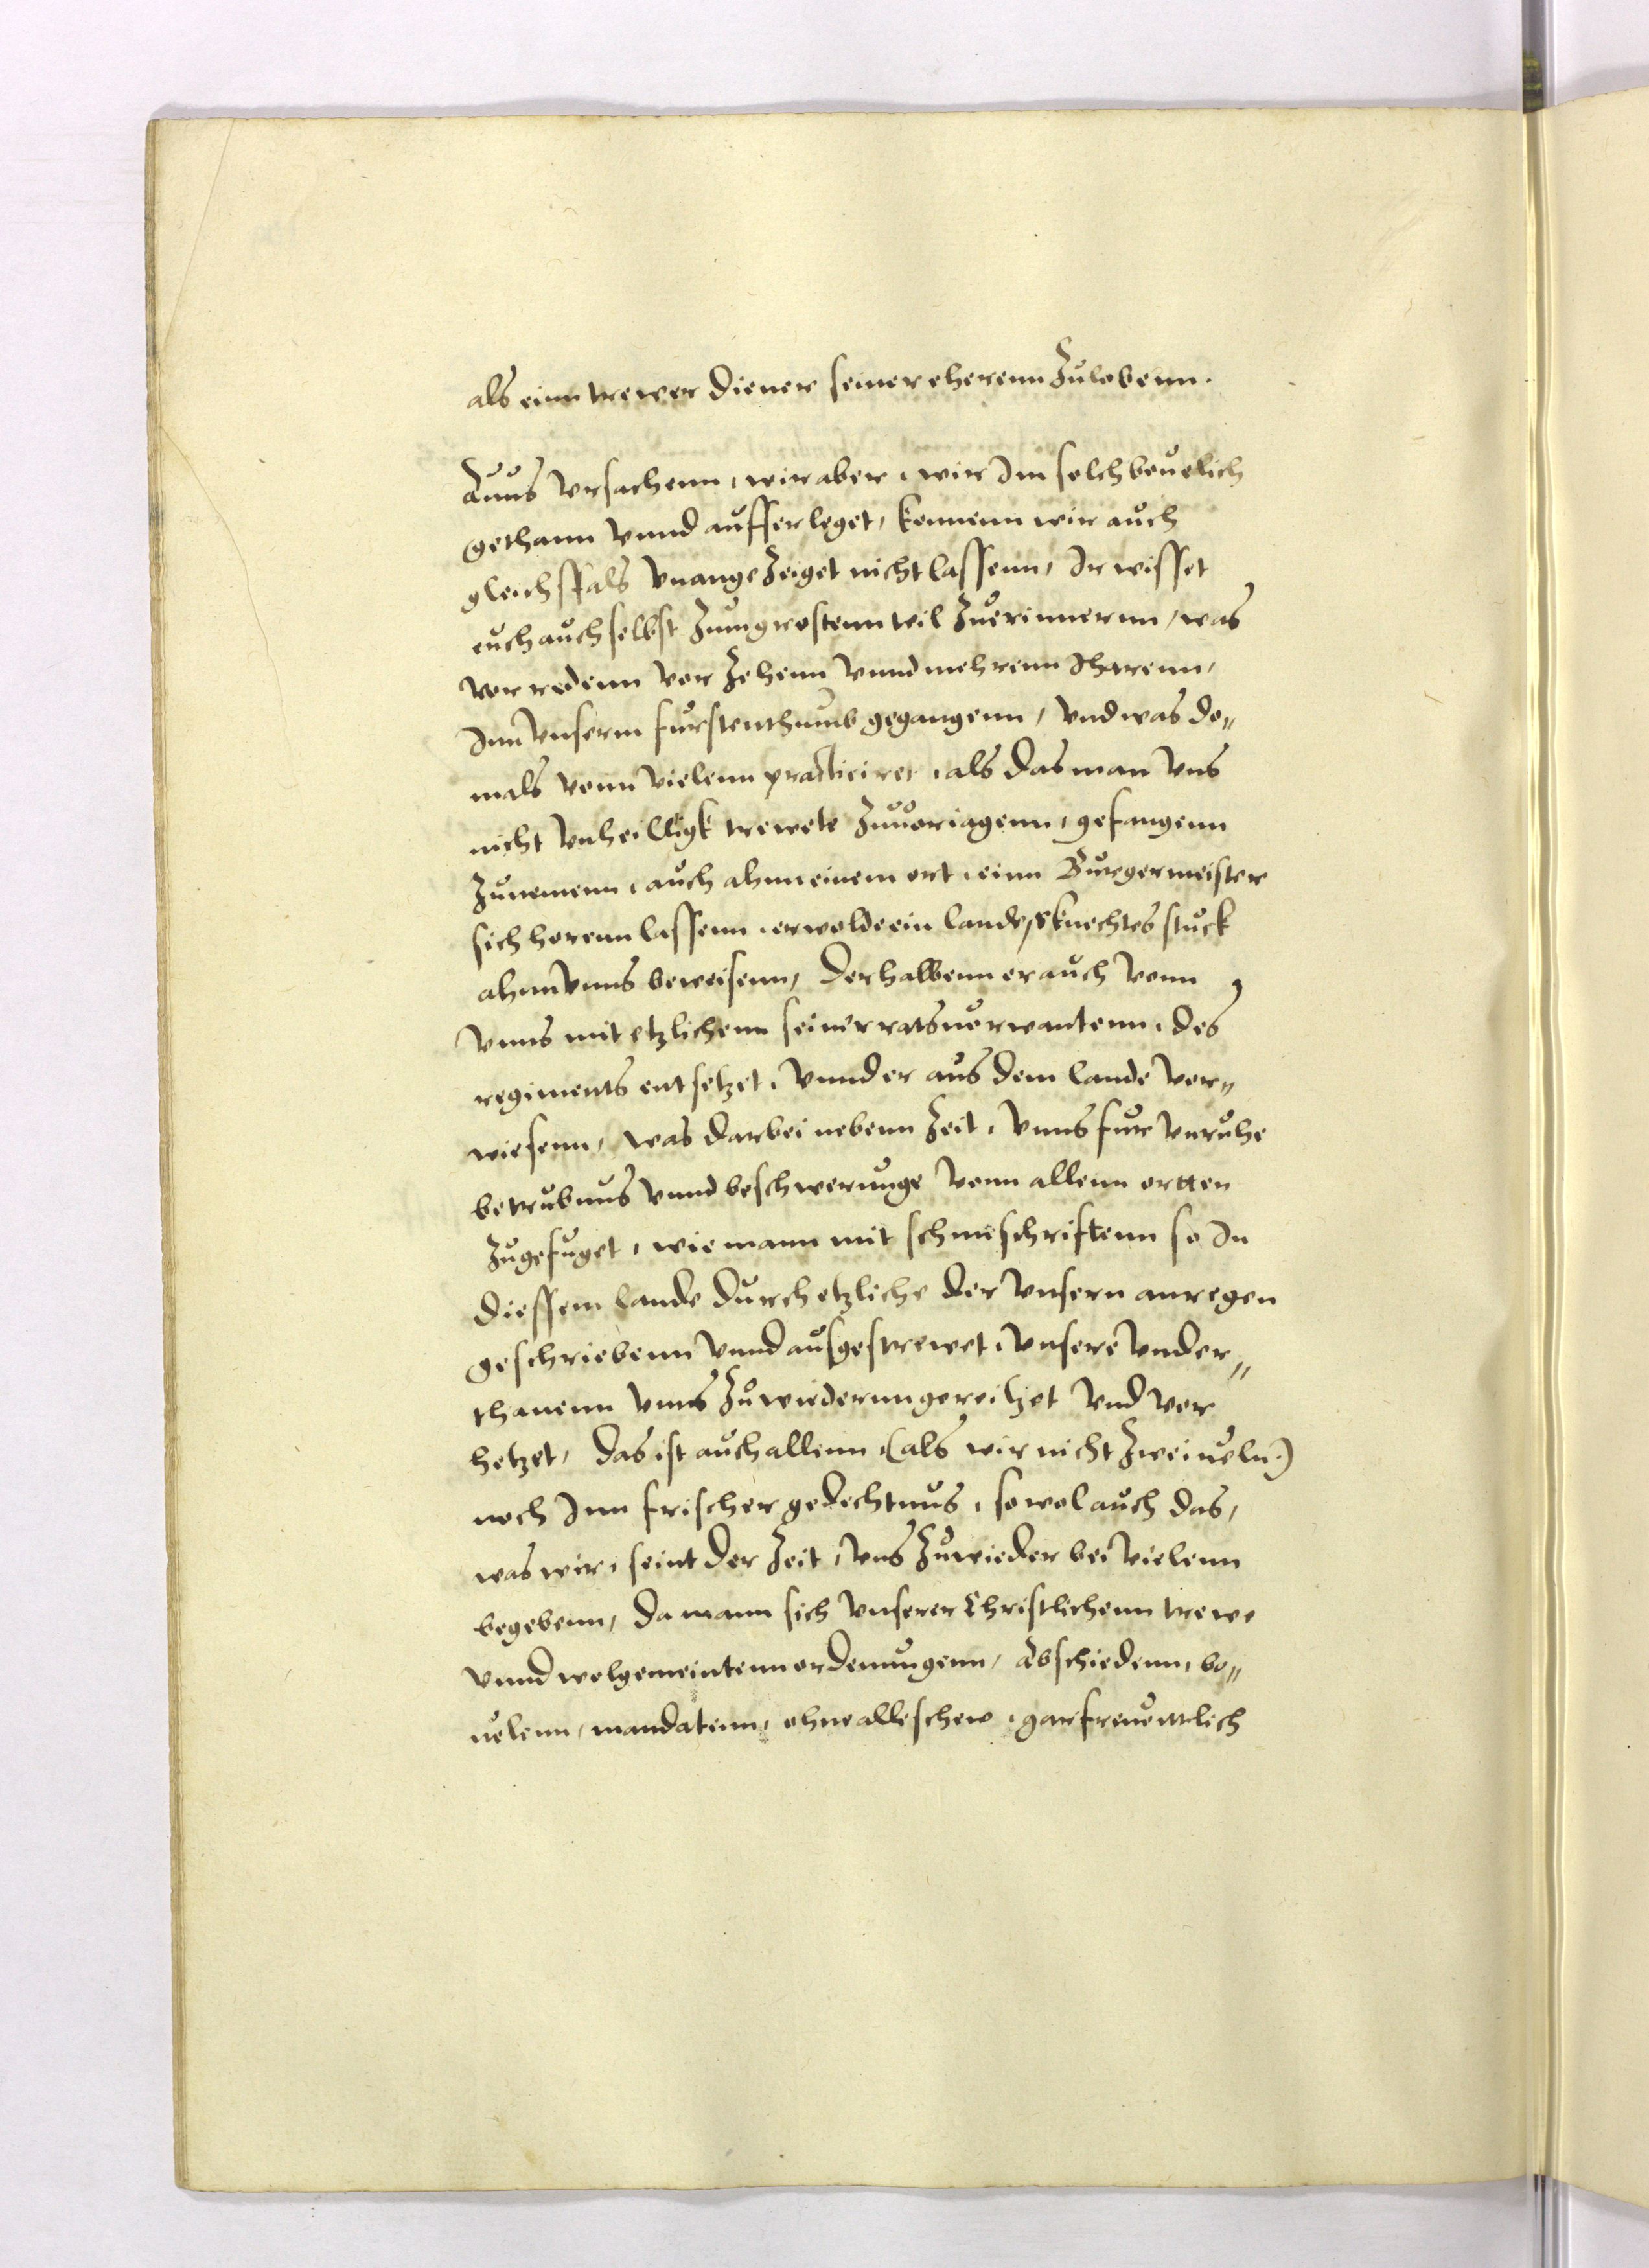 als einn trewer diener seiner eherenn Zulobenn.
Auus Vrsachenn, wir aber, wir Im solch beuelich
gethann Vnnd aufferleget, kennenn wir auch
gleichsfals Vnangezeiget nicht lassenn, Ir wisset
euch auch selbst Zum grostenn teil Zuerinnernn, was
Vor redenn Vor Zehenn Vnnd mehrenn Iharenn,
Inn Vnserm furstenthumb gegangenn, Vnd was do„
mals Vonn Vielenn practiciret, als das man Vns
nicht Vnheilligk trewete Zuuoriagenn, gefangenn
Zunemenn, auch ahnn einem ort, einn Burgermeister
sich horenn lassenn, er wolde ein landesknechtes stuck
ahnn Vnns beweisenn, Derhalbenn er auch Vonn
Vnns mit etzlichenn seiner ratsuorwantenn, des
regiments entsetzet, Vnnd er aus dem lande Vor„
wiesenn, was darbei nebenn Zeit, Vnns fur Vnruhe
betrubnus Vnnd beschwerunge Vonn allenn ortten
Zugefuget, wie mann mit schmeschriftenn so In
diessem lande durch etzliche der Vnsern anregen
geschriebenn Vnnd ausgestrewet, Vnsere Vnder„
thanenn Vnns Zuwiedernn gereitzet Vnd Vor
hetzet, Das ist auch allenn (als wir nicht Zweiueln)
noch Inn frischer gedechtnus, so wol auch das,
was wir, seint der Zeit, Vns Zuwieder bei Vielenn
begebenn, Da mann sich Vnserer Christlichenn trewe
Vnnd wolgemeintenn ordenungenn, Abschiedenn, be„
uelenn, mandatenn, ohne alle schew, gar freuentlich